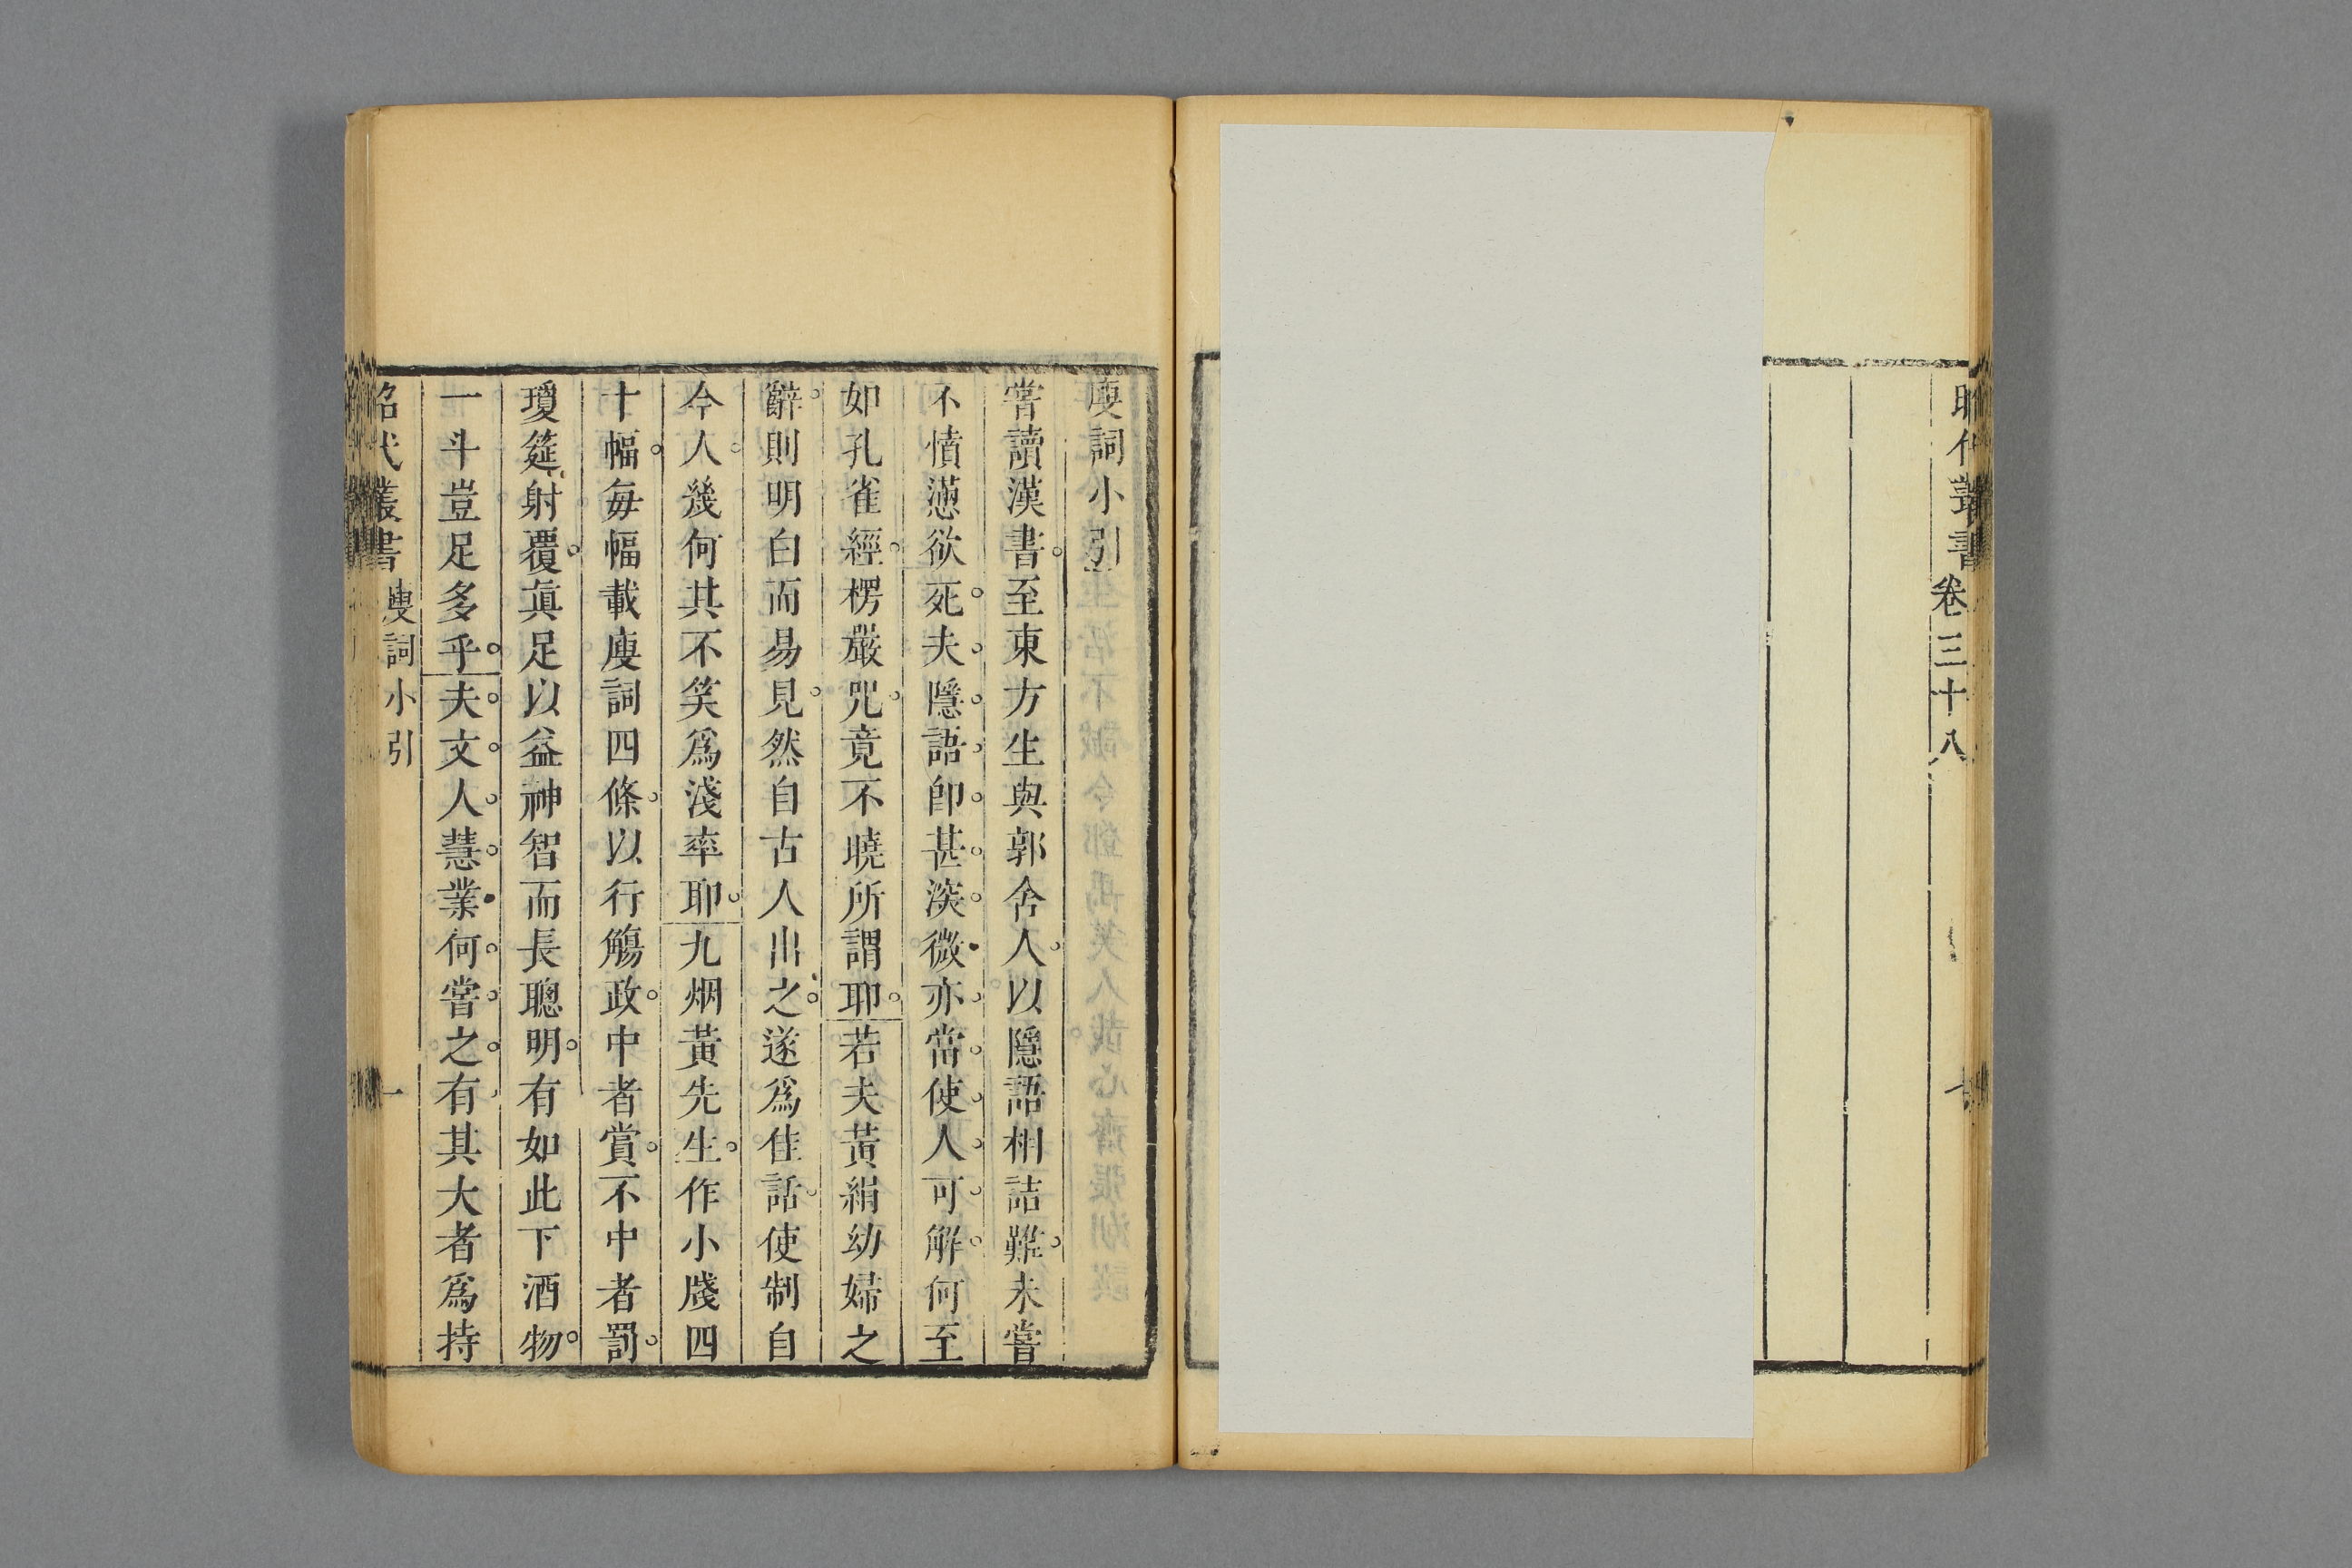 昭代叢書 卷三十八
廋詞小引
嘗讀漢書至東方生與郭舍人以隱語相詰難未嘗
不憤懑欲死夫隱語卽甚深微亦當使人可解何至
如孔雀經楞嚴咒竟不曉所謂耶若夫黃絹幼婦之
辭則明白而易見然自古人出之遂爲佳話使制自
今人幾何其不笑爲淺率耶九烟黃先生作小牋四
十幅每幅載廋詞四條以行觴政中者賞不中者罰
瓊筵射覆眞足以益神智而長聰明有如此下酒物
一斗豈足多乎夫文人慧業何嘗之有其大者爲持
昭代叢書 廋詞小引 一